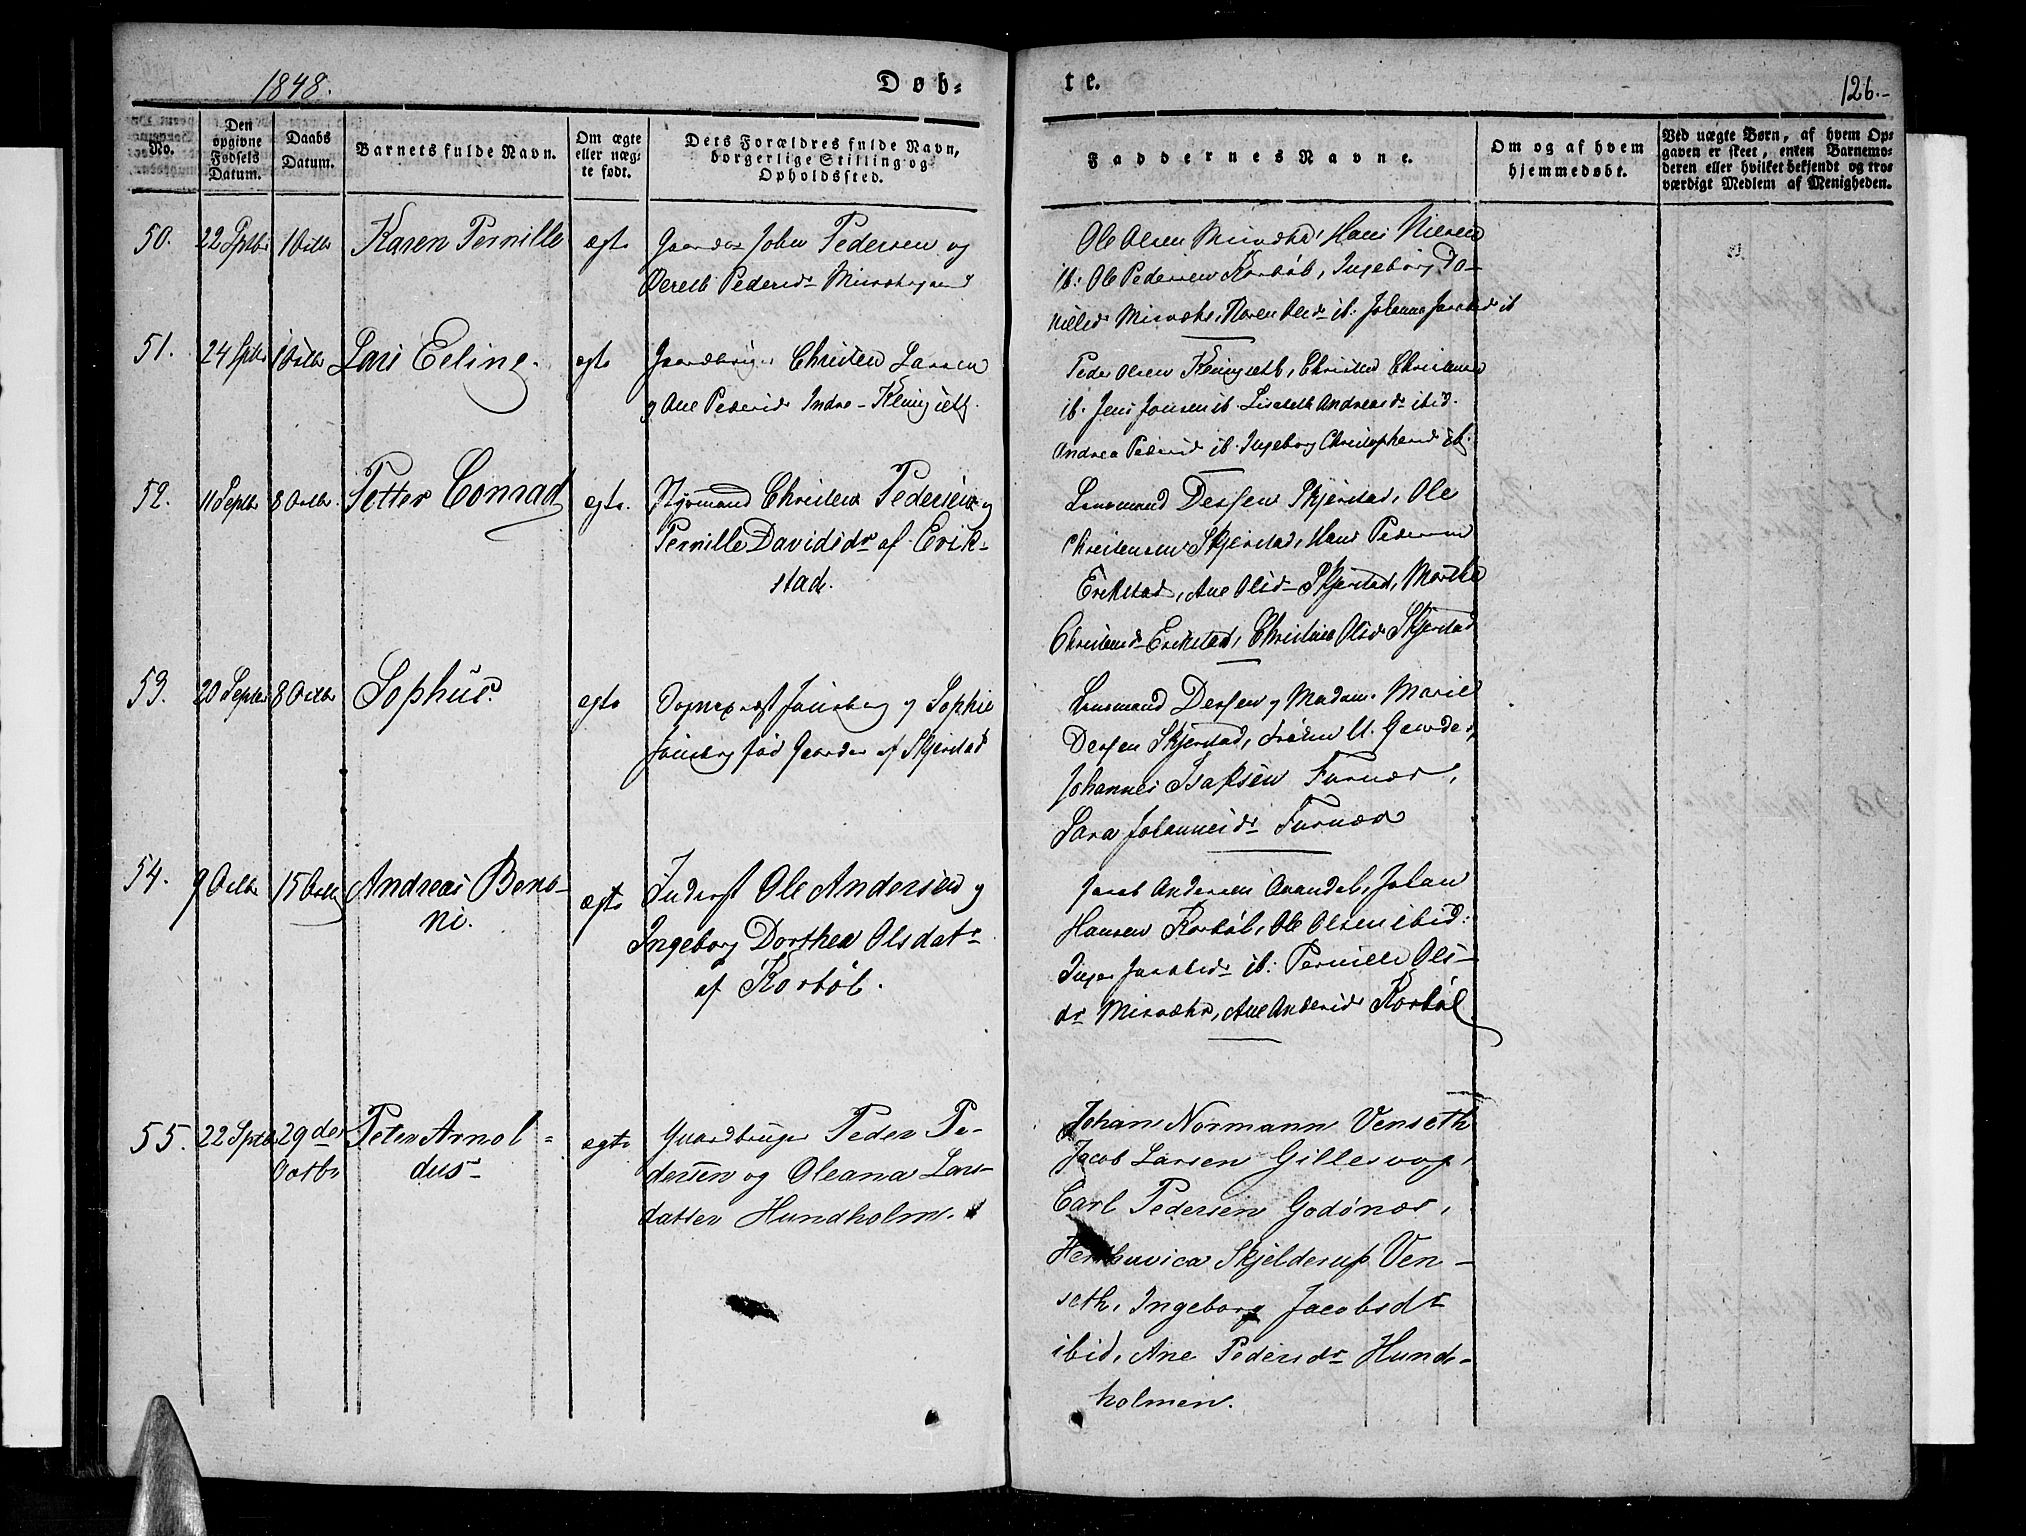 1848.
Døb=
te.
126.-
No.
Den opgivne Fødsels Datum.
Daabs Datum.
Barnets fulde Navn.
Om ægte eller uægte født.
Dets Forældres fulde Navn, borgerlige Stilling og Opholdssted.
Faddernes Navne.
Om og af hvem hjemmedøbt.
Ved uægte Børn, af hvem Opgaven er skeet, enten Barnemoderen eller hvilket bekjendt og troværdigt Medlem af Menigheden.
50. 22 Sptbr 1 Octbr Karen Pernille ægte
John Pedersen og
Pedersdr
Ole Olsen Misvær, Hans Nilsen
ib. Ole Pedersen Korbøl, Ingeborg Da-
nielsd Misvær, Karen Olsdr ib. Johanna Jacobsd ib
51. 24 Sptbr 1 Octbr Lars Eeling. ægte
Gaardbruger Christen Larsen
og Ane Pedersd Indre-
Peder Olsen Christen Christensen
ib. Jens Jonsen ib. Liscebeth Andreasdr ibid.
Andrea Pedersd ib. Ingeborg Christophersd ib.
52. 11 Septbr 8 Octbr. Petter Conrad ægte.
Styrmand Christen Pedersen og
Pernille Davidsdr af Erik-
stad.
Lensmand Skjerstad, Ole
Christensen Skjerstad, Hans Pedersen
Erikstad, Ane Olsdr Skjerstad, Marthe
Christensd Erikstad, Christine Olsdr Skjerstad
53. 20 Septbr 8 Octbr Sophus ægte
Sognepræst og Sophie
født af Skjerstad
Lensmand og Madam Marie
Skjerstad, Frøken
Johannes Isaksen Furnæs,
Sara Johannesdr Furnæs
54. 9 Octbr 15 Octbr Andreas Beno-
ni. ægte
Inderst Ole Andersen og
Ingeborg Dorthea Olsdatr
af Korbøl.
Jacob Andersen Johan
Hansen Korbøl, Ole Olsen ibid.
Inger Jacobsdr ib. Pernille Ols-
dr Misvær, Ane Andersdr Korbøl
55. 22 Sptbr 29de
Octbr Peter Arnol=
dus ægte
Gaardbruger Peder Pe-
dersen og Oleana Lars-
datter Hundholm.
Johan Normann Venseth
Jacob Larsen Gillesvag,
Carl Pedersen Godønæs,
Skjelderup Ven-
seth, Ingeborg Jacobsdr
ibid, Ane Pedersdr Hund-
holmen.